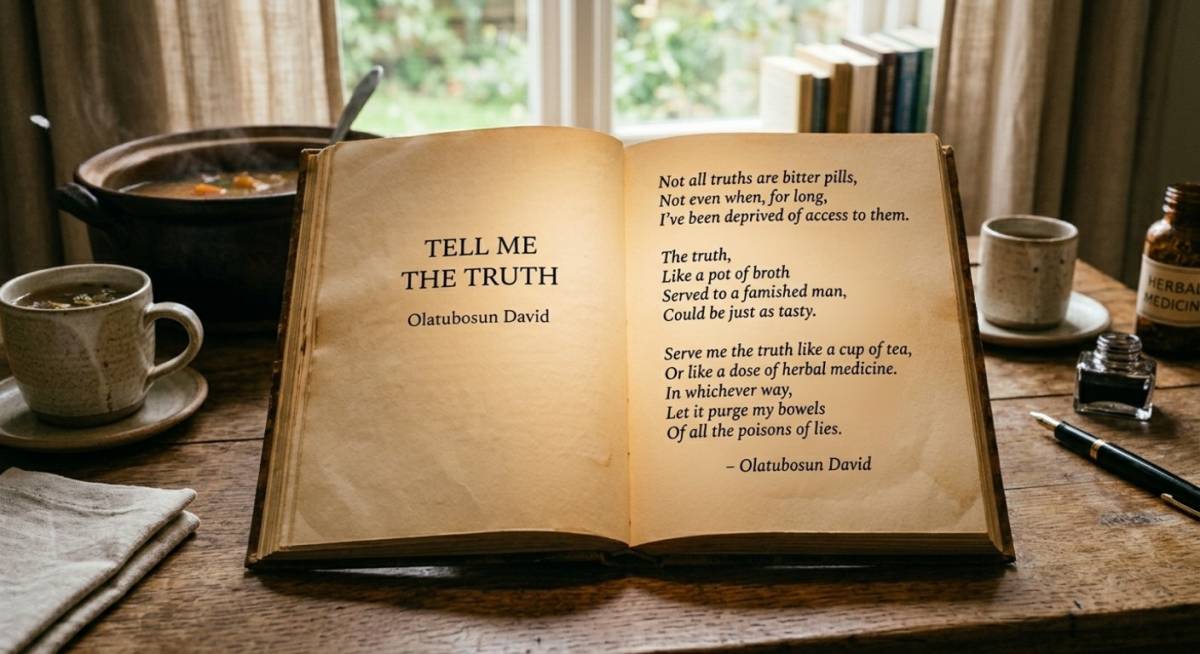 TELL ME
THE TRUTH
Olatubosun David
Not all truths are bitter pills,
Not even when, for long,
I've been deprived of access to them.
The truth,
Like a pot of broth
Served to a famished man,
Could be just as tasty.
Serve me the truth like a cup of tea,
Or like a dose of herbal medicine.
In whichever way,
Let it purge my bowels
Of all the poisons of lies.
– Olatubosun David
HERBAL
MEDICINE